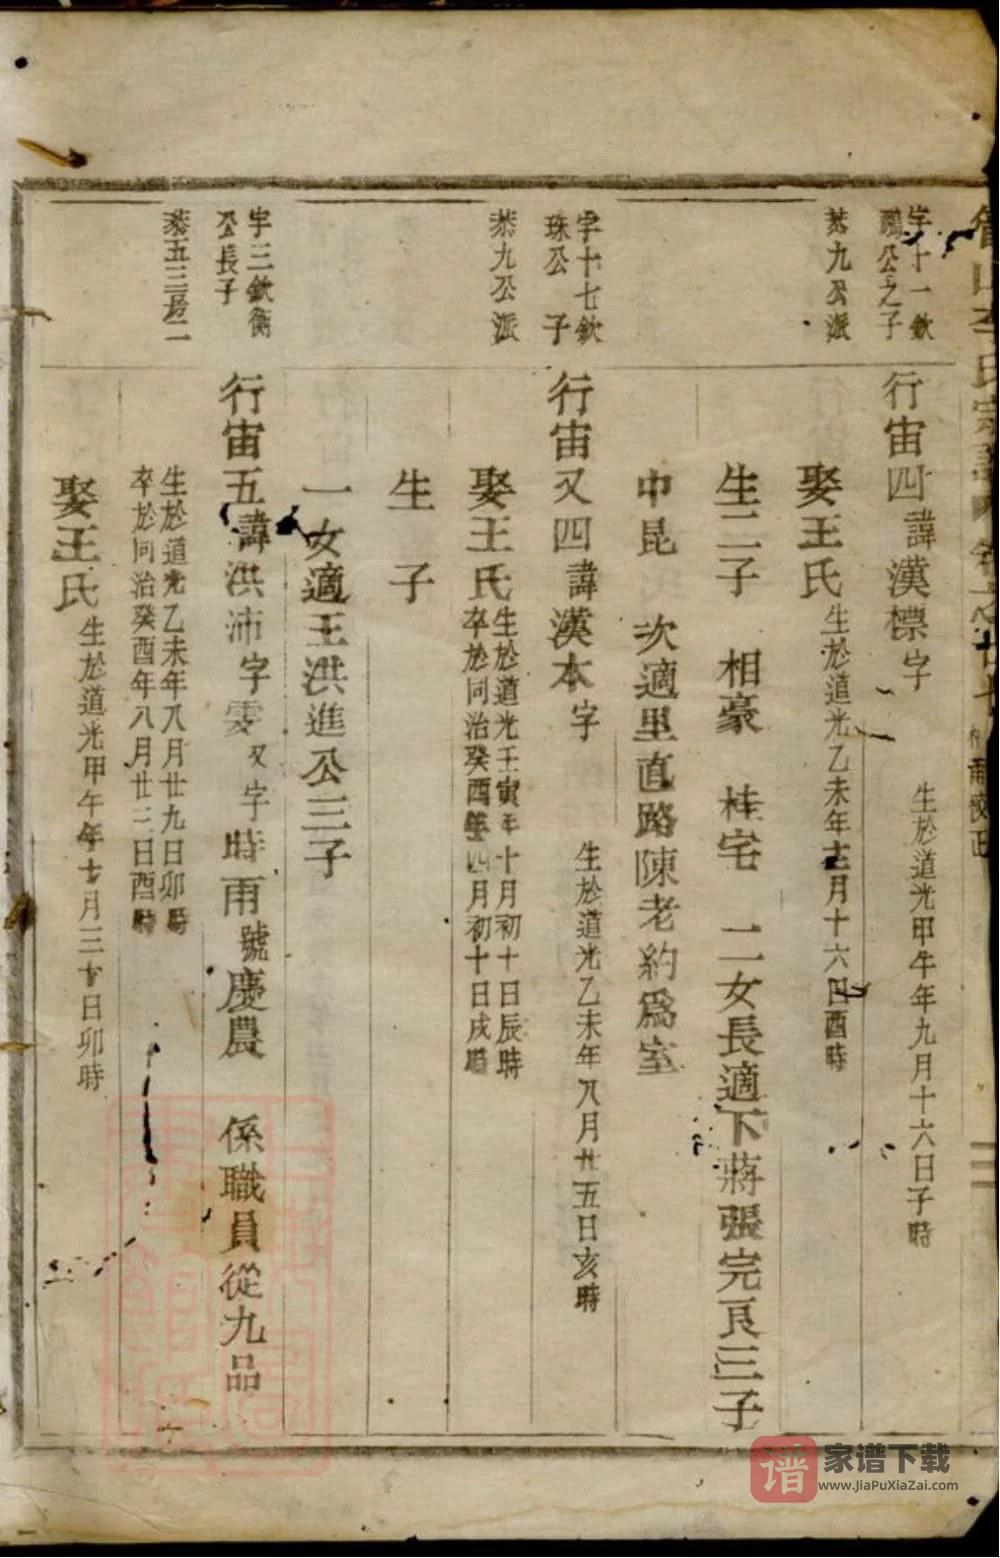 李氏宗譜
字十一欽
公之子
恭九公派
行宙四諱漢標字
生於道光甲午年九月十六日子時
娶王氏
生於道光乙未年十二月十六日酉時
生二子 相豪 桂宅 二女長適下蔣張完良三子
中昆 次適里直路陳老約爲室
字十七欽
珠公 子
恭九公派
行宙又四諱漢本字
生於道光乙未年八月廿五日亥時
娶王氏
生於道光壬寅年十月初十日辰時
卒於同治癸酉年四月初十日戌時
生 子
一女適王洪進公三子
字三欽衡
公長子
恭五三房二
行宙五諱洪沛字雯又字時雨號慶農 係職員從九品
生於道光乙未年八月廿九日卯時
卒於同治癸酉年八月廿二日酉時
娶王氏
生於道光甲午年十月三十日卯時
谱
家谱下载
www.JiaPuXiaZai.com